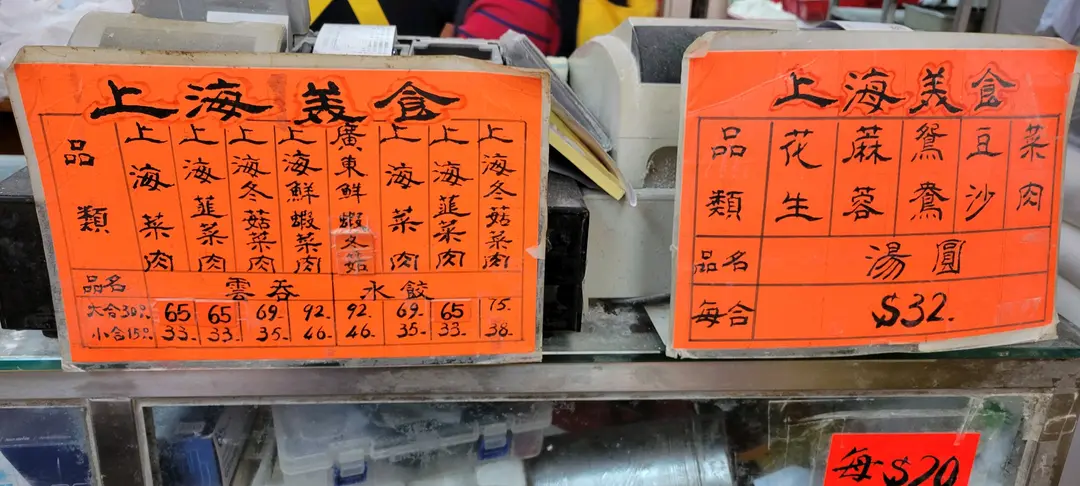 上海美食
品類 上海菜肉 上海韮菜肉 上海冬菇菜肉 上海鮮蝦菜肉 廣東鮮蝦冬菇 上海菜肉 上海韮菜肉 上海冬菇菜肉
品名 雲吞 水餃
大合30只 65 65 69. 92. 92. 69. 65 75.
小合15只 33. 33. 35. 46. 46. 35. 33. 38.
上海美食
品類 花生 蔴蓉 鴛鴦 豆沙 菜肉
品名 湯圓
每合 $32.
每$20